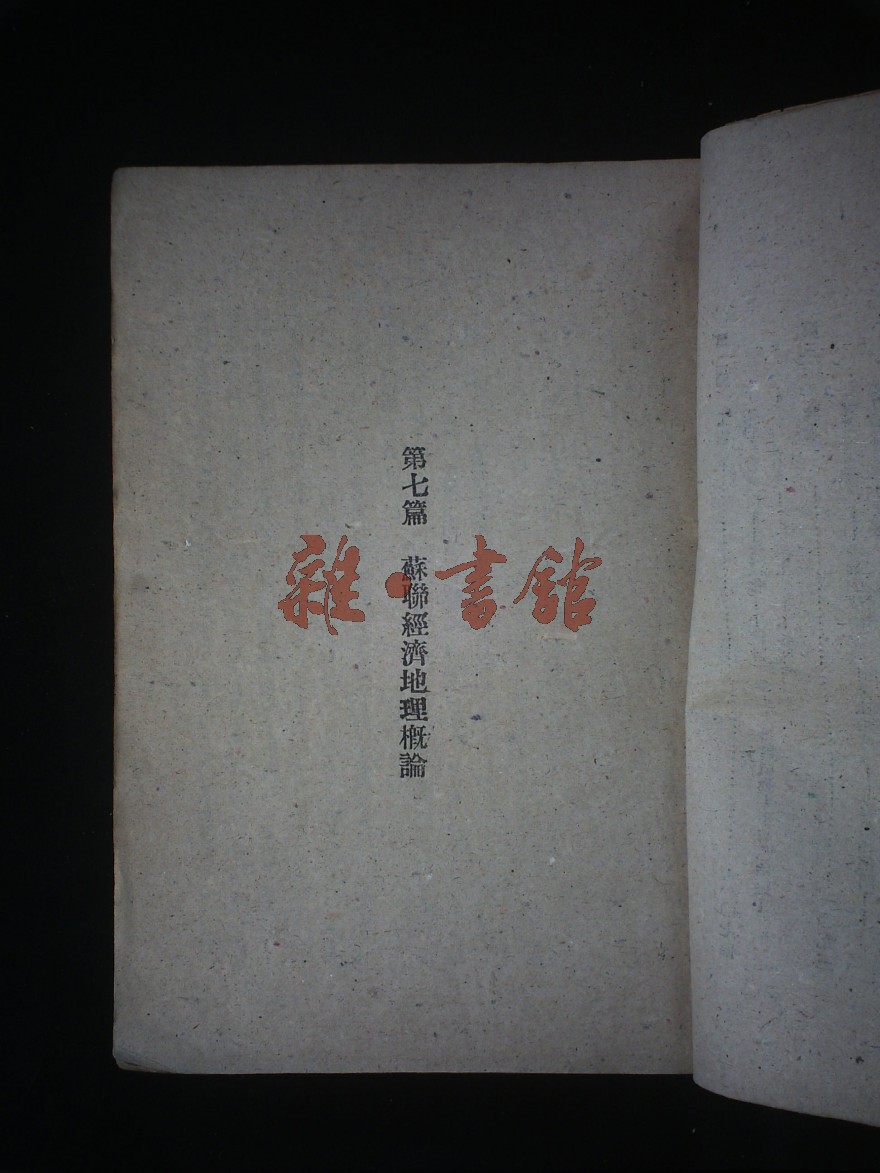 第七篇　蘇聯經濟地理概論
雜·書館